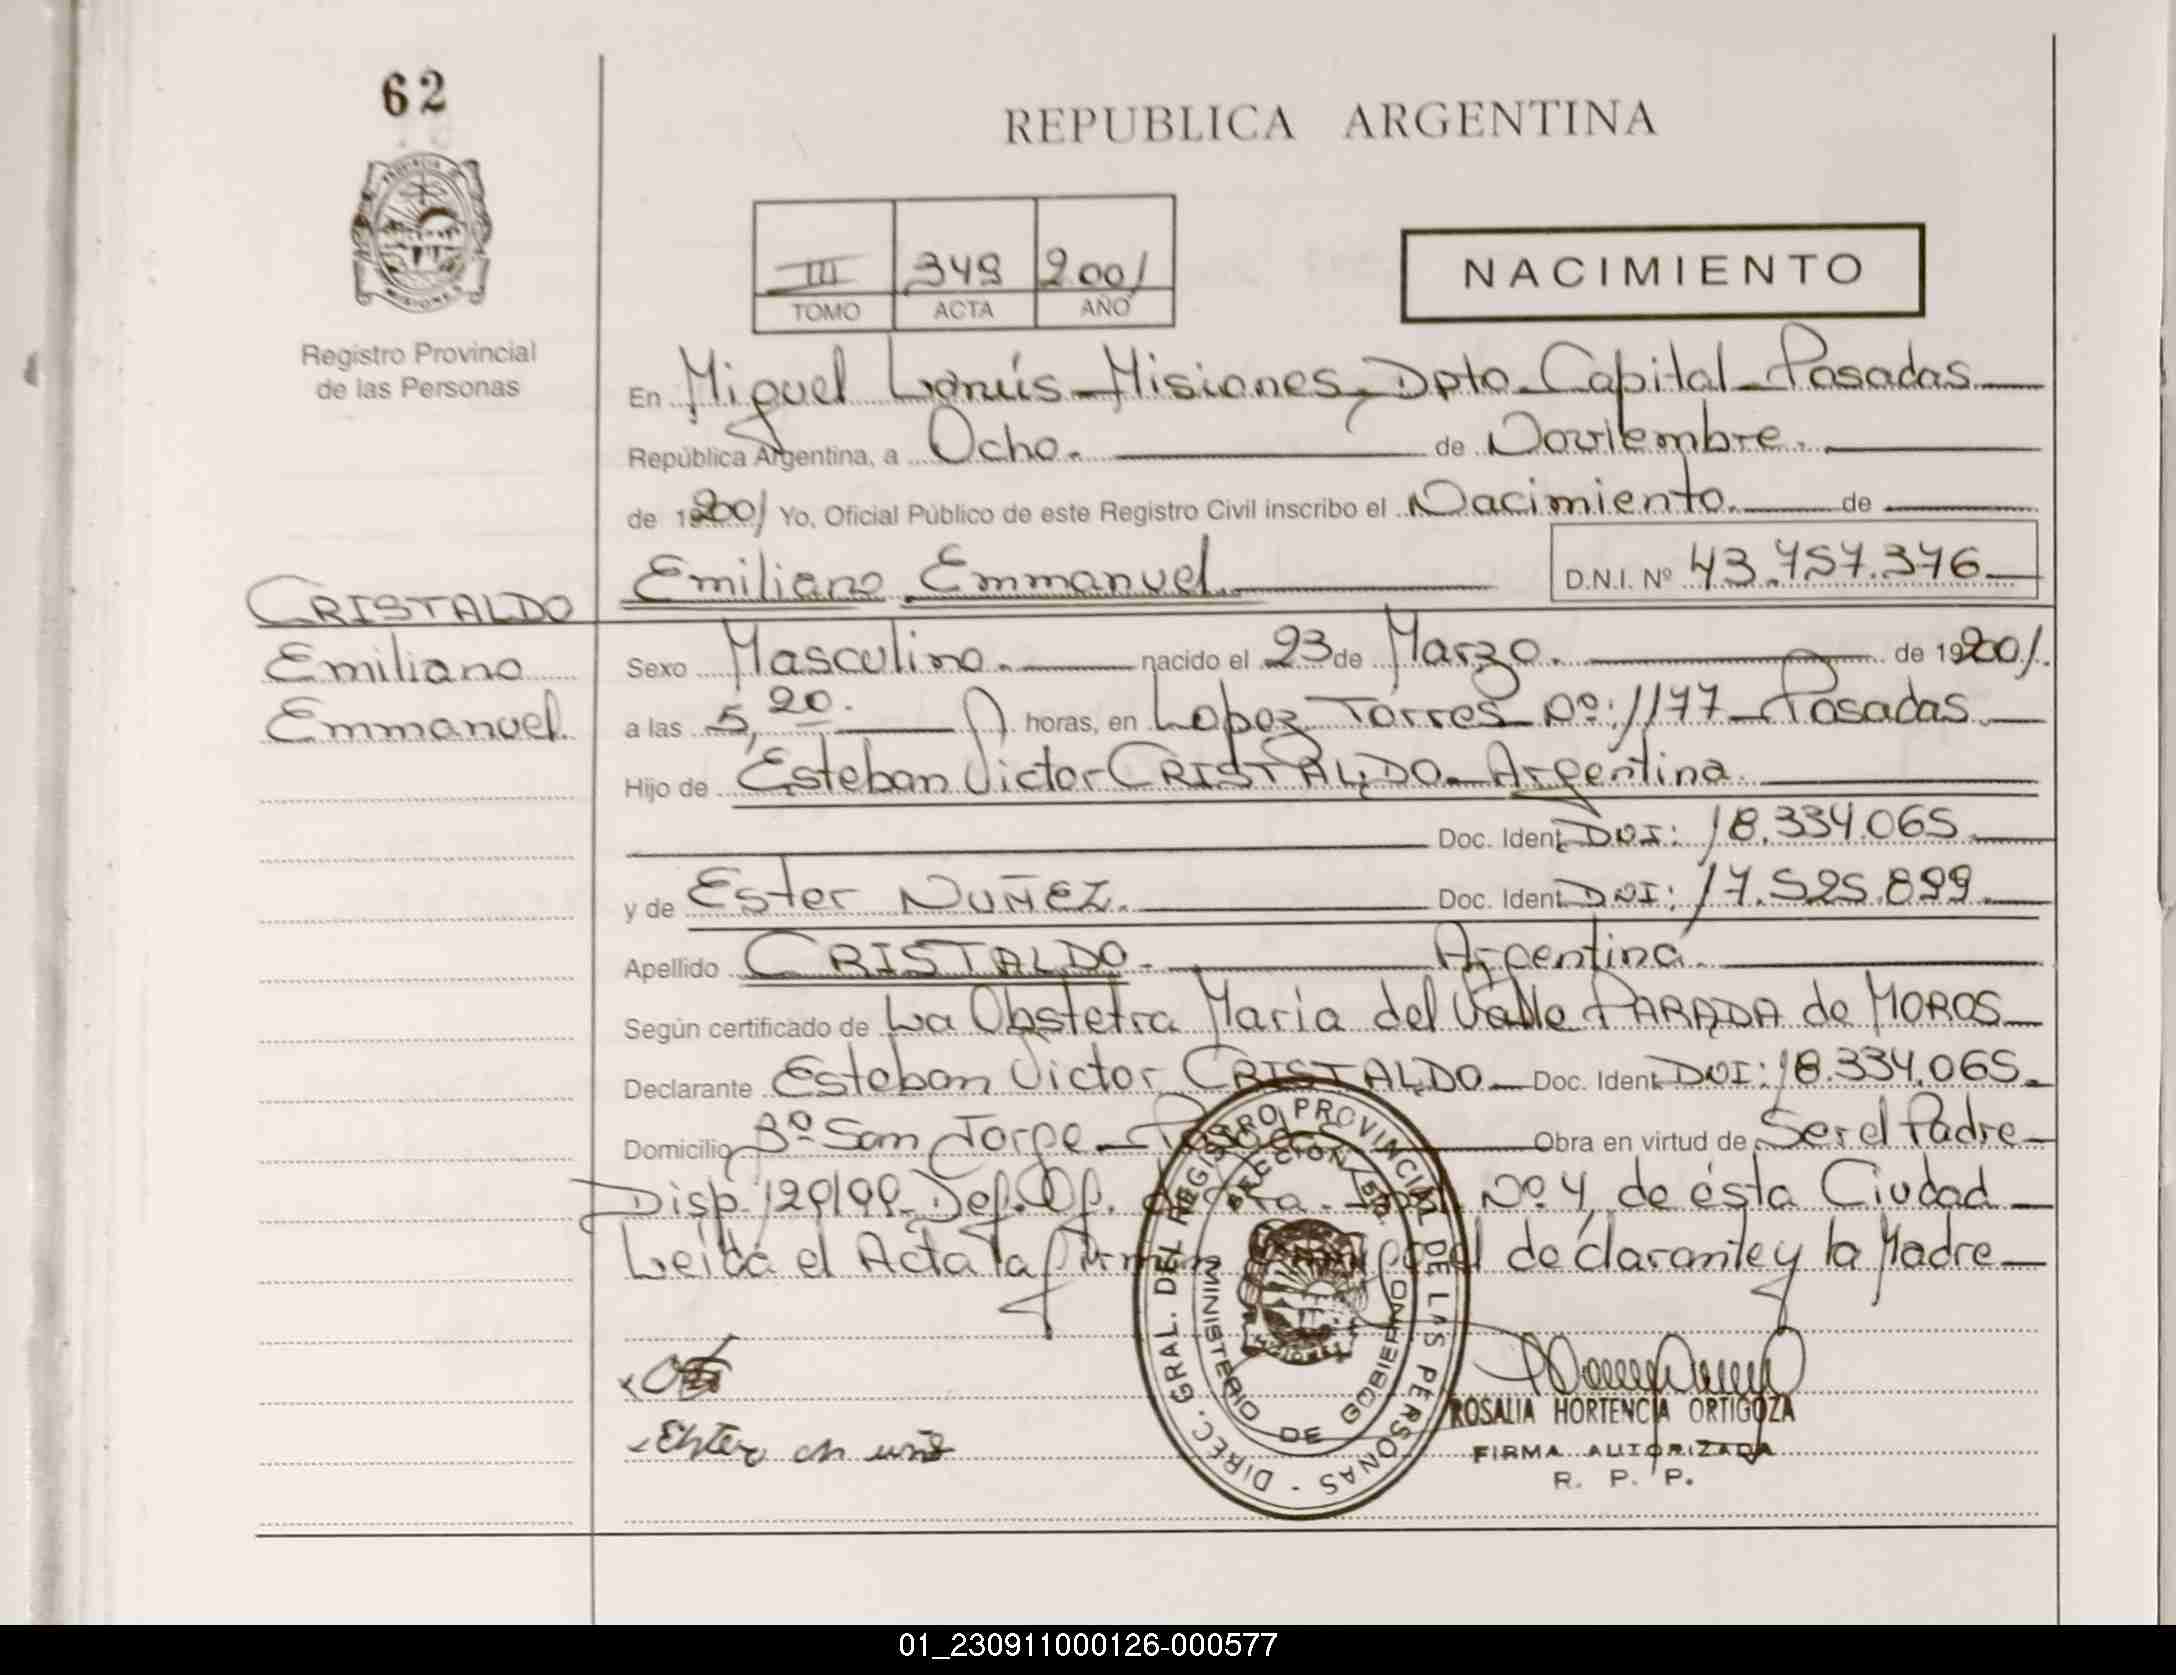 62
REPUBLICA ARGENTINA
III 349 2001
TOMO ACTA AÑO
NACIMIENTO
Registro Provincial
de las Personas
En Miguel Lanús - Misiones, Dpto. Capital - Posadas
República Argentina, a Ocho. de Noviembre.
de 2001 Yo, Oficial Público de este Registro Civil inscribo el Nacimiento. de
Emiliano Emmanuel D.N.I. Nº 43.757.376
CRISTALDO
Emiliano
Emmanuel.
Sexo Masculino. nacido el 23 de Marzo. de 2001.
a las 5,20. horas, en Lopez Torres Nº: 1177 - Posadas.
Hijo de Esteban Victor CRISTALDO - Argentina.
Doc. Ident. DNI: 18.334.065
y de Ester NUÑEZ. Doc. Ident. DNI: 17.525.899
Apellido CRISTALDO. Argentina.
Según certificado de La Obstetra Maria del Valle PARADA de MOROS
Declarante Esteban Victor CRISTALDO - Doc. Ident. DNI: 18.334.065.
Domicilio Bº San Jorge - Obra en virtud de Ser el Padre
Disp. 129/99 - Def. Of. Nº 4, de ésta Ciudad
Leida el Acta la el declarante y la Madre
DIREC. GRAL. DEL REGISTRO PROVINCIAL DE LAS PERSONAS
MINISTERIO DE GOBIERNO
MISIONES
ROSALIA HORTENCIA ORTIGOZA
FIRMA AUTORIZADA
R. P. P.
01_230911000126-000577